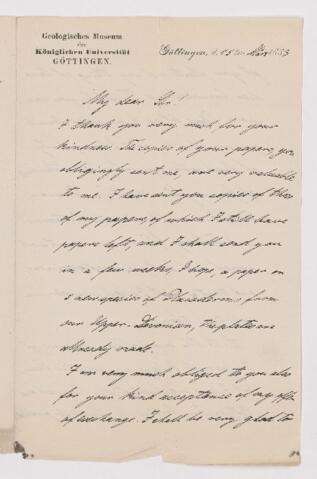 Geologisches Museum
der
Königlichen Universität
GÖTTINGEN.
Göttingen, d. 15ten März 1883
My dear Sir!
I thank you very much for your
kindness. The copies of your papers, you
obligingly sent me are very valuable
to me. I have sent you copies of those
of my papers, of which I still have
papers left, and I shall send you
in a few weeks, I hope, a paper on
5 new species of Placoderms from
our Upper-Devonian, the plates are
allready made.
I am very much obliged to you also
for your kind acceptance of my offer
of exchange. I shall be very glad to